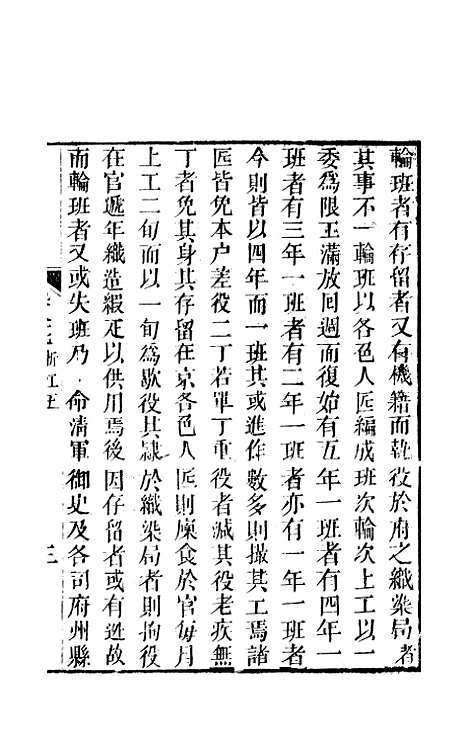 輪班者有存留者又有機籍而執役於府之織染局者
其事不一輪班以各色人匠編成班次輪次上工以一
委爲限王滿放回週而復始有五年一班者有四年一
班者有三年一班者有二年一班者亦有一年一班者
今則皆以四年而一班其或進作數多則撮其工焉諸
匠皆免本户差役二丁若單丁重役者減其役老疾無
丁者免其身其存留在京各色人匠則廩食於官每月
上工二旬而以一旬爲歇役其隷於織染局者則拘役
在官遞年織造緞疋以供用焉後因存留者或有逃故
而輪班者又或失班乃命清軍御史及各司府州縣
浙江五
三